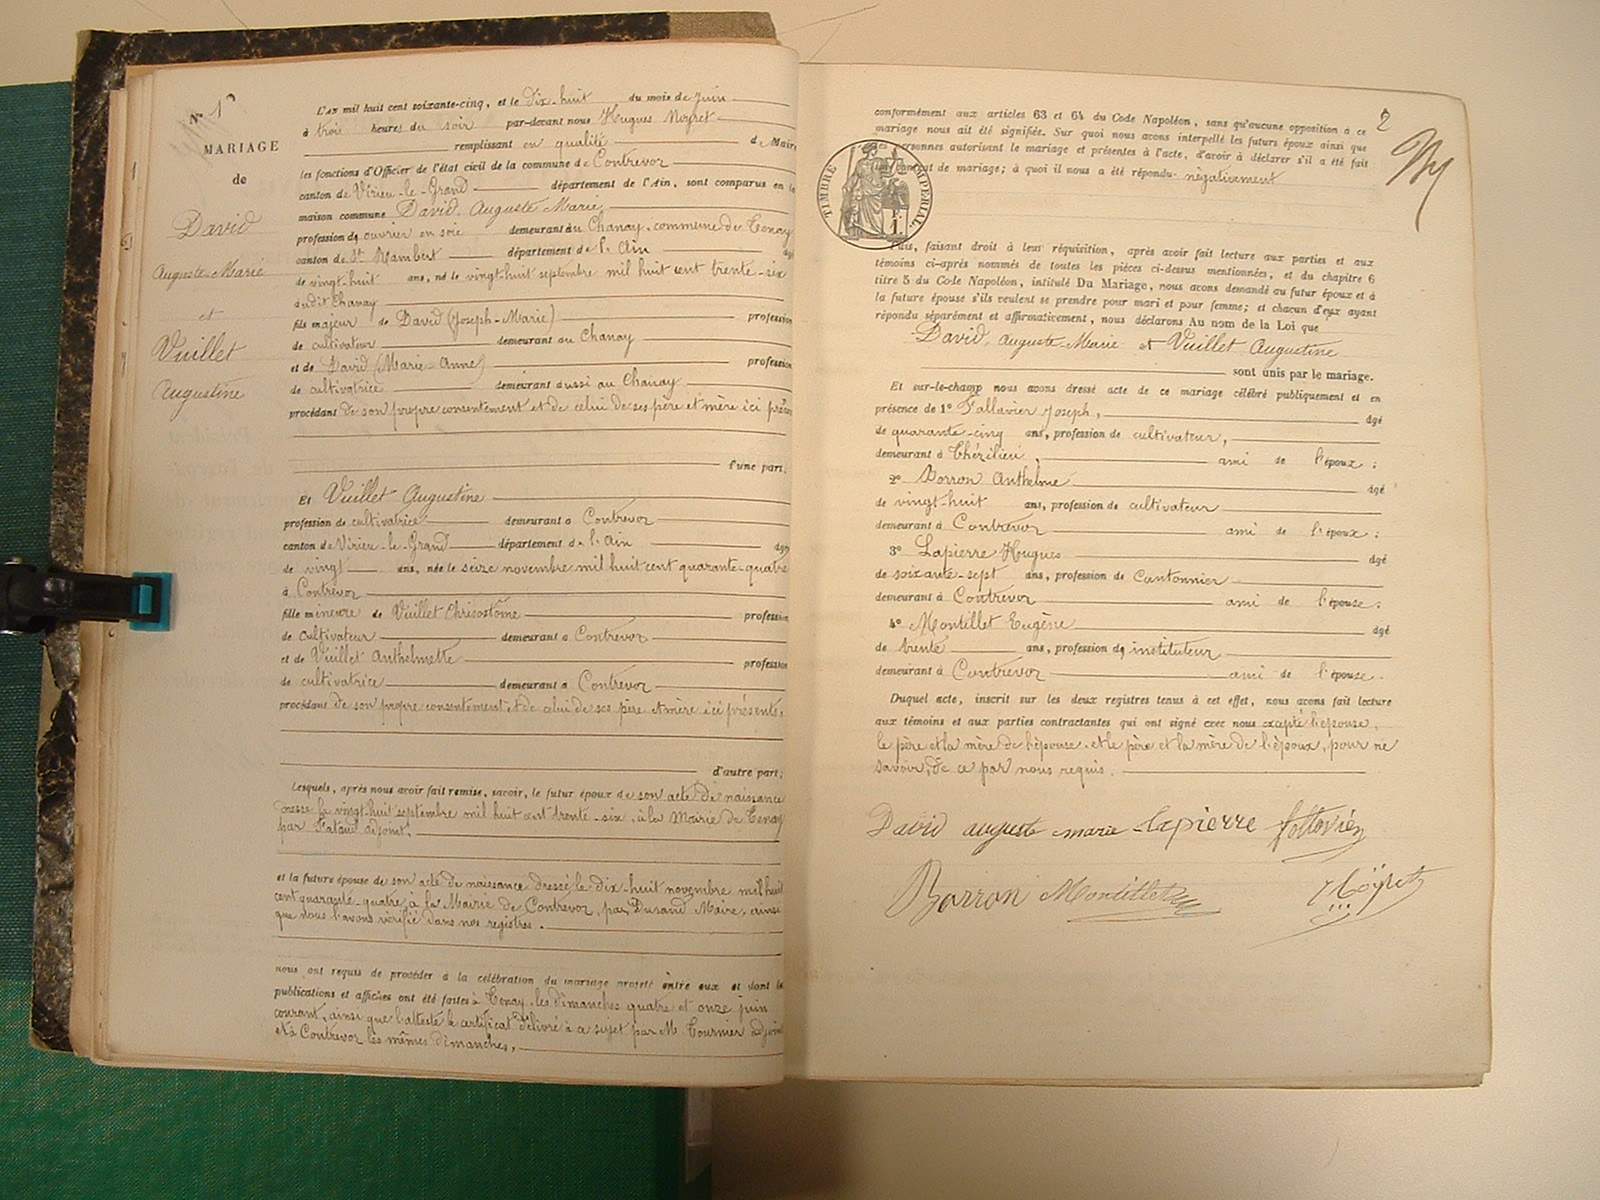 N° 1
MARIAGE
de
David
Auguste-Marie
et
Vuillet
Augustine
L'AN mil huit cent soixante-cinq, et le dix-huit du mois de Juin
à trois heures du soir par-devant nous Hugues Noyret
remplissant en qualité de Maire
les fonctions d'Officier de l'état civil de la commune de Contrevoz
canton de Virieu-le-Grand département de l'Ain, sont comparus en la
maison commune David, Auguste Marie,
profession de ouvrier en soie demeurant au Chanay, commune de Tenay
canton de St Rambert département de l'Ain âgé
de vingt-huit ans, né le vingt-huit septembre mil huit cent trente-six
audit Chanay
fils majeur de David (Joseph-Marie) profession
de cultivateur demeurant au Chanay
et de David (Marie-Anne) profession
de cultivatrice demeurant aussi au Chanay
procédant de son propre consentement et de celui de ses père et mère ici
d'une part;
Et Vuillet Augustine
profession de cultivatrice demeurant à Contrevoz
canton de Virieu-le-Grand département de l'Ain âgée
de vingt ans, née le seize novembre mil huit cent quarante-quatre
à Contrevoz
fille mineure de Vuillet Chrisostôme profession
de cultivateur demeurant à Contrevoz
et de Vuillet Anthelmette profession
de cultivatrice demeurant à Contrevoz
procédant de son propre consentement et de celui de ses père et mère ici présents,
d'autre part;
Lesquels, après nous avoir fait remise, savoir, le futur époux de son acte de naissance
dressé le vingt-huit septembre mil huit cent trente-six, à la Mairie de Tenay
par adjoint.
et la future épouse de son acte de naissance dressé le dix-huit novembre mil huit
cent quarante-quatre, à la Mairie de Contrevoz, par Durand Maire, ainsi
que nous l'avons vérifié dans nos registres.
nous ont requis de procéder à la célébration du mariage projeté entre eux et dont les
publications et affiches ont été faites à Tenay, les dimanches quatre et onze juin
courant, ainsi que l'atteste le certificat délivré à ce sujet par M. Tournier adjoint
et à Contrevoz les mêmes dimanches,
2
conformément aux articles 63 et 64 du Code Napoléon, sans qu'aucune opposition à ce
mariage nous ait été signifiée. Sur quoi nous avons interpellé les futurs époux ainsi que
les personnes autorisant le mariage et présentes à l'acte, d'avoir à déclarer s'il a été fait
un contrat de mariage; à quoi il nous a été répondu négativement
TIMBRE IMPÉRIAL
F.
1.
Puis, faisant droit à leur réquisition, après avoir fait lecture aux parties et aux
témoins ci-après nommés de toutes les pièces ci-dessus mentionnées, et du chapitre 6
titre 5 du Code Napoléon, intitulé Du Mariage, nous avons demandé au futur époux et à
la future épouse s'ils veulent se prendre pour mari et pour femme; et chacun d'eux ayant
répondu séparément et affirmativement, nous déclarons Au nom de la Loi que
David, Auguste-Marie et Vuillet Augustine
sont unis par le mariage.
Et sur-le-champ nous avons dressé acte de ce mariage célébré publiquement et en
présence de 1° Fallavier Joseph, âgé
de quarante-cinq ans, profession de cultivateur,
demeurant à Thézilieu, ami de l'époux;
2° Borron Anthelme âgé
de vingt-huit ans, profession de cultivateur
demeurant à Contrevoz ami de l'époux;
3° Lapierre Hugues âgé
de soixante-sept ans, profession de Cantonnier
demeurant à Contrevoz ami de l'épouse;
4° Montillet Eugène âgé
de trente ans, profession de instituteur
demeurant à Contrevoz ami de l'épouse.
Duquel acte, inscrit sur les deux registres tenus à cet effet, nous avons fait lecture
aux témoins et aux parties contractantes qui ont signé avec nous excepté l'épouse,
le père et la mère de l'épouse, et le père et la mère de l'époux, pour ne
savoir, de ce par nous requis.
David auguste marie Lapierre
Barron Montillet Noÿret